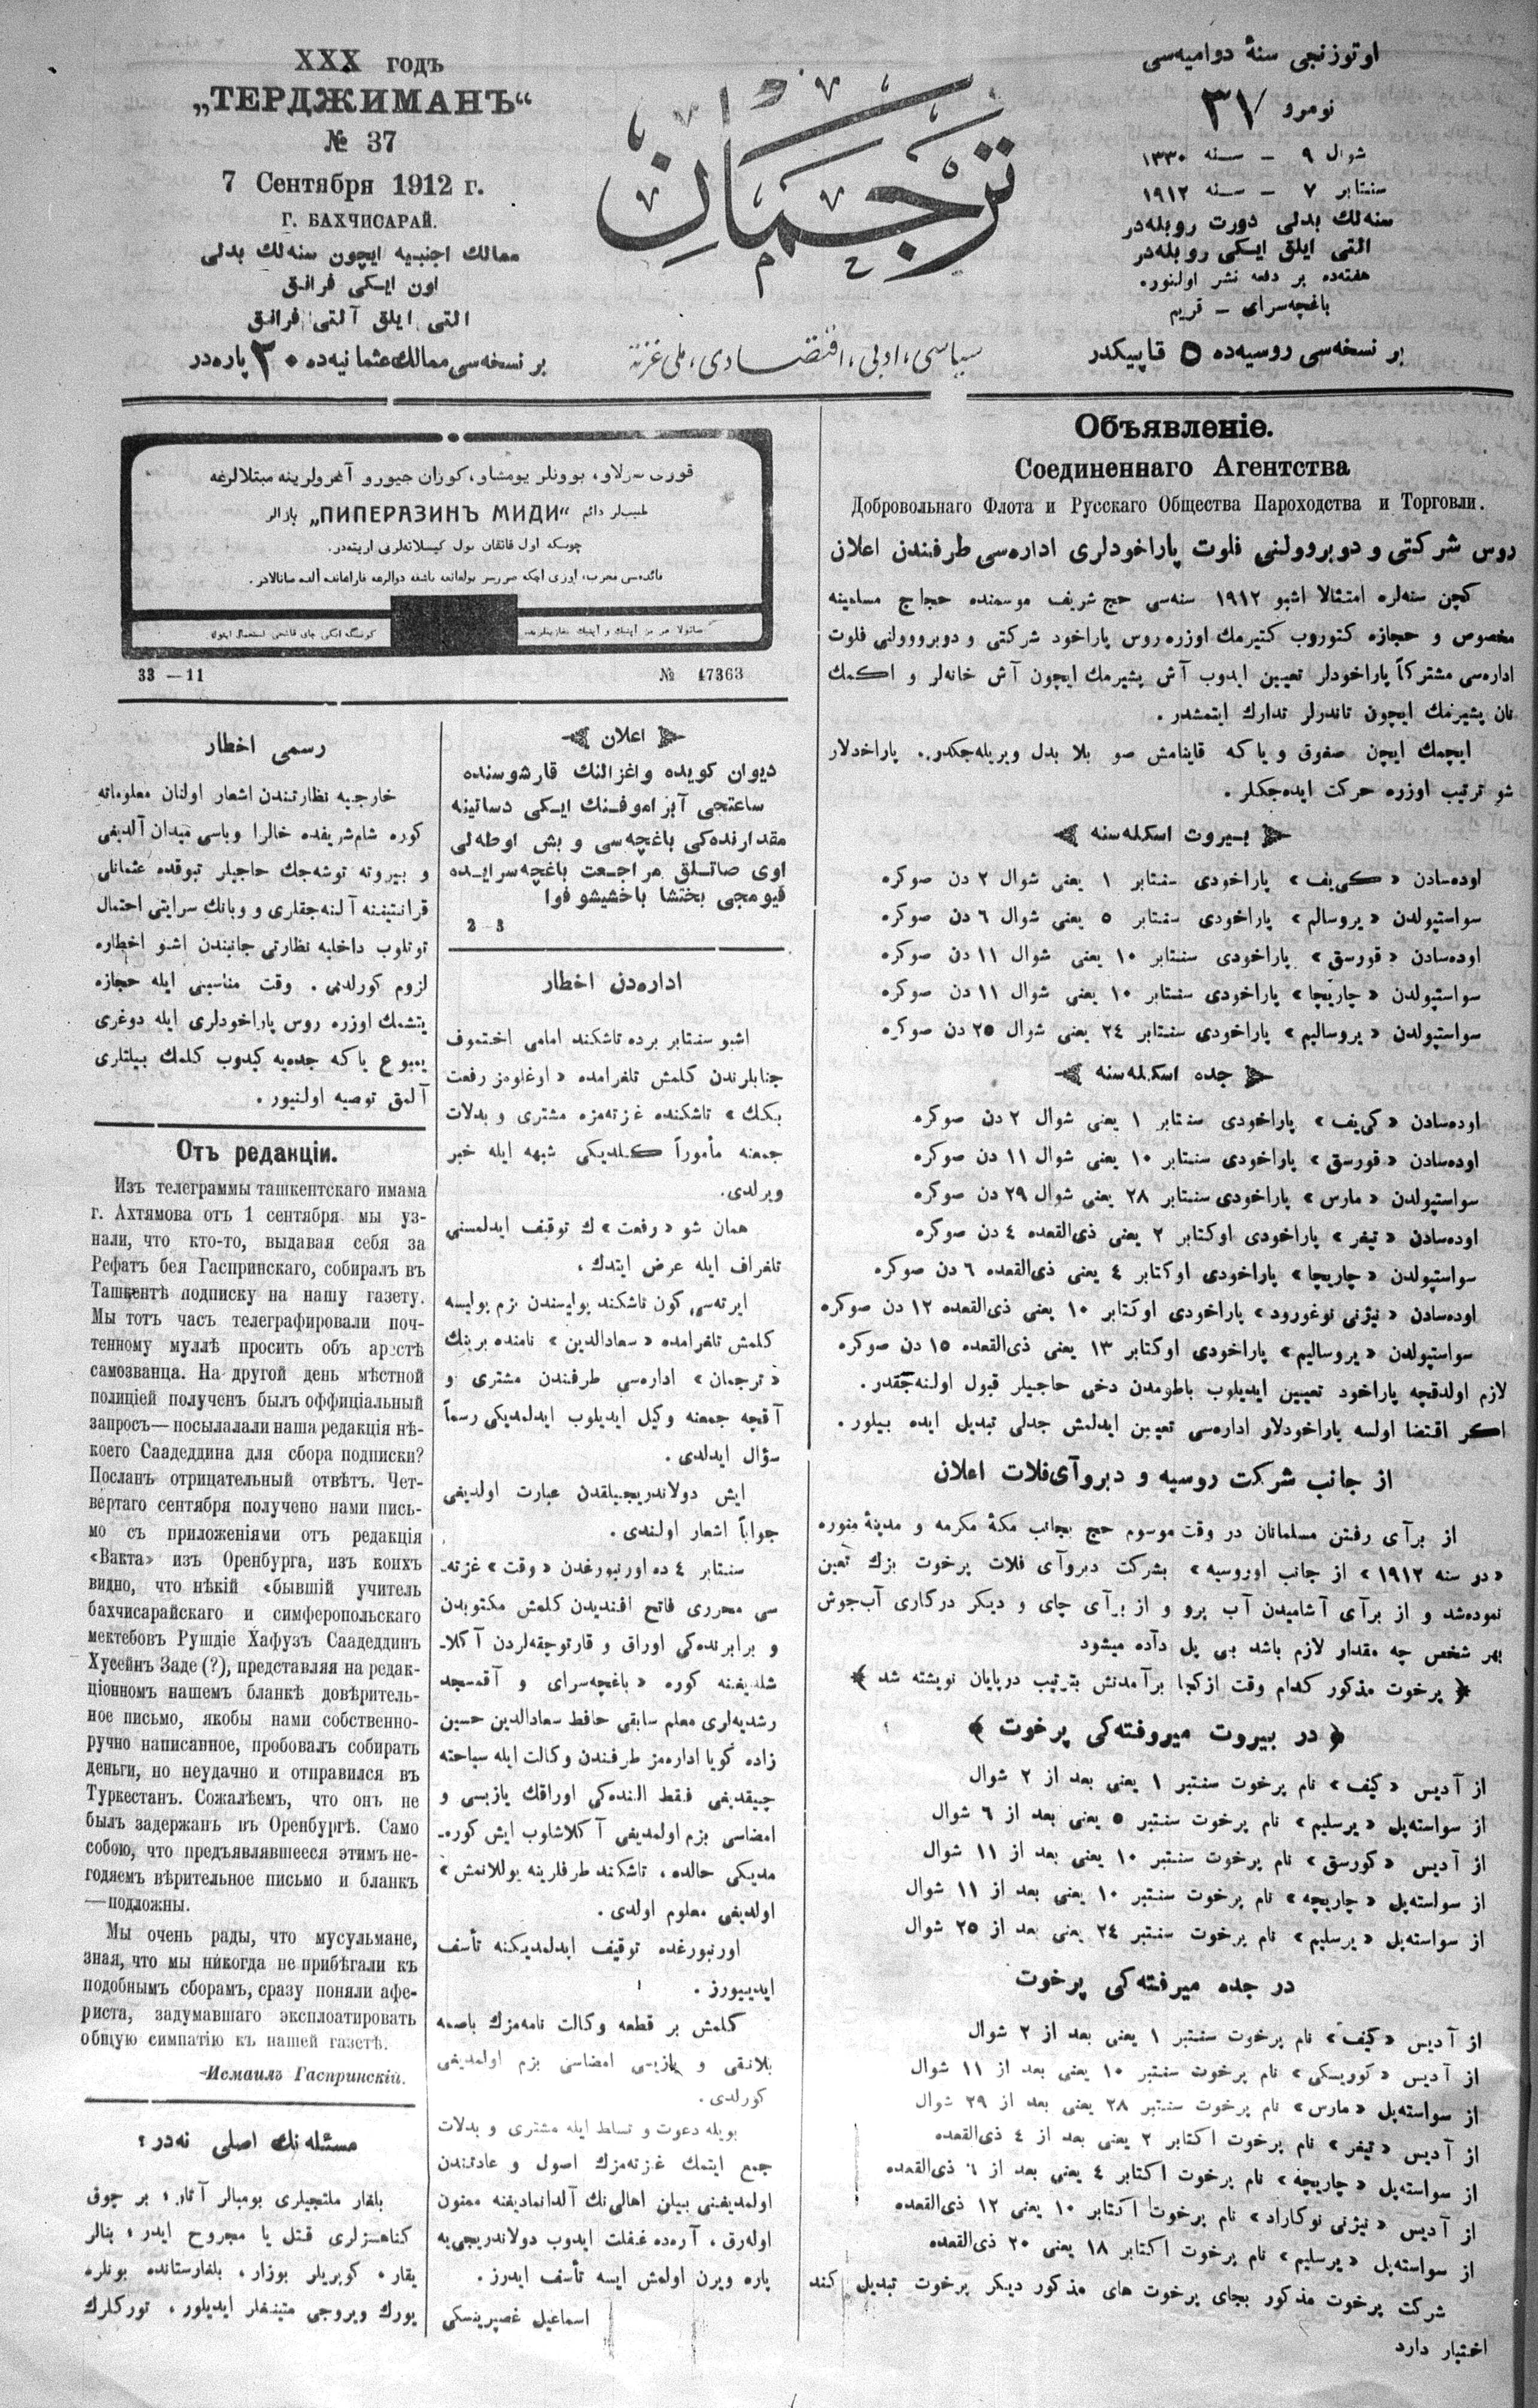 XXX годъ
„ТЕРДЖИМАНЪ“
№ 37
7 Сентября 1912 г.
Г. БАХЧИСАРАЙ.
ممالك اجنبیه ایچون سنه‌لك بدلی
اون ایكی فرانق
التی ایلق آلتی فرانق
بر نسخه‌سی ممالك عثمانیه‌ده ٢٠ پاره‌در
ترجمان
سیاسی، ادبی، اقتصادی، ملی غزته
اوتوزنجی سنهٔ دوامیه‌سی
نومرو ٣٧
شوال ٩ — سنه ١٣٣٠
سنتابر ٧ — سنه ١٩١٢
سنه‌لك بدلی دورت روبله‌در
التی ایلق ایكی روبله‌در
هفته‌ده بر دفعه نشر اولنور.
باغچه‌سرای — قریم
بر نسخه‌سی روسیه‌ده ٥ قاپیكدر
Объявленіе.
Соединеннаго Агентства
Добровольнаго Флота и Русскаго Общества Пароходства и Торговли.
روس شركتی و دوبروولنی فلوت پاراخودلری اداره‌سی طرفندن اعلان
كچن سنه‌لره امتثالا اشبو ١٩١٢ سنه‌سی حج شریف موسمنده حجاج مسلمینه
مخصوص و حجازه كتوروب كتیرمك اوزره روس پاراخود شركتی و دوبروولنی فلوت
اداره‌سی مشتركاً پاراخودلر تعیین ایدوب آش پشیرمك ایچون آش خانه‌لر و اكمك
نان پشیرمك ایچون تاندرلر تدارك ایتمشدر.
ایچمك ایچن صغوق و یا كه قاینامش صو بلا بدل ویریله‌جكدر. پاراخدلار
شو ترتیب اوزره حركت ایده‌جكلر.
بیروت اسكله‌سنه
اوده‌سادن «كیف» پاراخودی سنتابر ١ یعنی شوال ٢ دن صوكره
سواستپولدن «یروسالم» پاراخودی سنتابر ٥ یعنی شوال ٦ دن صوكره
اوده‌سادن «قورسق» پاراخودی سنتابر ١٠ یعنی شوال ١١ دن صوكره
سواستپولدن «چاریچا» پاراخودی سنتابر ١٠ یعنی شوال ١١ دن صوكره
سواستپولدن «یروسالیم» پاراخودی سنتابر ٢٤ یعنی شوال ٢٥ دن صوكره
جده اسكله‌سنه
اوده‌سادن «كی‌یف» پاراخودی سنتابر ١ یعنی شوال ٢ دن صوكره
اوده‌سادن «قورسق» پاراخودی سنتابر ١٠ یعنی شوال ١١ دن صوكره
سواستپولدن «مارس» پاراخودی سنتابر ٢٨ یعنی شوال ٢٩ دن صوكره
اوده‌سادن «تیغر» پاراخودی اوكتابر ٢ یعنی ذی‌القعده ٤ دن صوكره
سواستپولدن «چاریچا» پاراخودی اوكتابر ٤ یعنی ذی‌القعده ٦ دن صوكره
اوده‌سادن «نیژنی نوغورود» پاراخودی اوكتابر ١٠ یعنی ذی‌القعده ١٢ دن صوكره
سواستپولدن «یروسالیم» پاراخودی اوكتابر ١٣ یعنی ذی‌القعده ١٥ دن صوكره
لازم اولدقچه پاراخود تعیین ایدیلوب باطومدن دخی حاجیلر قبول اولنه‌جقدر.
اكر اقتضا اولسه پاراخودلار اداره‌سی تعیین ایدلمش جدلی تبدیل ایده بیلور.
از جانب شركت روسیه و دبروآی فلات اعلان
از برآی رفتن مسلمانان در وقت موسوم حج بجانب مكهٔ مكرمه و مدینهٔ منوره
«در سنه ١٩١٢» از جانب اوروسیه» بشركت دبروآی فلات پرخوت بزك تعین
نموده‌شد و از برآی آشامیدن آب برو و از برآی چای و دیكر دركاری آب‌جوش
بهر شخص چه مقدار لازم باشد بی پل دآده میشود
پرخوت مذكور كدام وقت ازكجا برآمدنش بترتیب درپایان نویشته شد
﴿در بیروت میروفته‌كی پرخوت﴾
از آدیس «كیف» نام پرخوت سنتبر ١ یعنی بعد از ٢ شوال
از سواسته‌پل «یرسلیم» نام پرخوت سنتبر ٥ یعنی بعد از ٦ شوال
از آدیس «كورسق» نام پرخوت سنتبر ١٠ یعنی بعد از ١١ شوال
از سواسته‌پل «چاریچه» نام پرخوت سنتبر ١٠ یعنی بعد از ١١ شوال
از سواسته‌پل «یرسلیم» نام پرخوت سنتبر ٢٤ یعنی بعد از ٢٥ شوال
در جده میرفته‌كی پرخوت
از آدیس «كیف» نام پرخوت سنتبر ١ یعنی بعد از ٢ شوال
از آدیس «كوریسكی» نام پرخوت سنتبر ١٠ یعنی بعد از ١١ شوال
از سواسته‌پل «مارس» نام پرخوت سنتبر ٢٨ یعنی بعد از ٢٩ شوال
از آدیس «تیغر» نام پرخوت اكتابر ٢ یعنی بعد از ٤ ذی‌القعده
از سواسته‌پل «چاریچه» نام پرخوت اكتابر ٤ یعنی بعد از ٦ ذی‌القعده
از آدیس «نیژنی نوكاراد» نام پرخوت اكتابر ١٠ یعنی ١٢ ذی‌القعده
از سواسته‌پل «یرسلیم» نام پرخوت اكتابر ١٨ یعنی ٢٠ ذی‌القعده
شركت پرخوت مذكور بجای پرخوت های مذكور دیكر پرخوت تبدیل كند
اختیار دارد
قوری سرلاو، بوونلر یومشاو، كوزان جیورو آغرولرینه مبتلالرغه
طبیب‌لر دائم „ПИПЕРАЗИНЪ МИДИ“ یازالر
چونكه اول قاتقان بول كیسلاته‌لرنی اریته‌در.
33 —11
№ 17363
اعلان
دیوان كویده واغزالنك قارشوسنده
ساعتجی آبراموفنك ایكی دساتینه
مقدارنده‌كی باغچه‌سی و بش اوطه‌لی
اوی صاتلق مراجعت باغچه‌سرایده
قیومجی بختشا باخشیشو فوا
2—3
اداره‌دن اخطار
اشبو سنتابر برده تاشكند امامی اختموف
جنابلرندن كلمش تلغرامده «اوغلومز رفعت
بكك» تاشكنده غزته‌مزه مشتری و بدلات
جمعنه مأموراً كلدیكی شبهه ایله خبر
ویرلدی.
همان شو «رفعت» ك توقیف ایدلمسنی
تلغراف ایله عرض ایتدك.
ایرته‌سی كون تاشكند پولیسندن بزم پولیسه
كلمش تلغرامده «سعادالدین» نامنده برینك
«ترجمان» اداره‌سی طرفندن مشتری و
آقچه جمعنه وكیل ایدیلوب ایدلمدیكی رسماً
سؤال ایدلدی.
ایش دولاندریجیلقدن عبارت اولدیغی
جواباً اشعار اولندی.
سنتابر ٤ ده اورنبورغدن «وقت» غزته‌-
سی محرری فاتح افندیدن كلمش مكتوبدن
و برابرنده‌كی اوراق و قارتوچقه‌لردن آكلا-
شلدیغنه كوره «باغچه‌سرای و آقمسجد
رشدیه‌لری معلم سابقی حافظ سعادالدین حسین
زاده كویا اداره‌مز طرفندن وكالت ایله سیاحته
چیقدیغی فقط النده‌كی اوراقك یازیسی و
امضاسی بزم اولمدیغی آكلاشلوب ایش كوره-
مدیكی حالده، تاشكند طرفلرینه یوللانمش»
اولدیغی معلوم اولدی.
اورنبورغده توقیف ایدلمدیكنه تأسف
ایدییورز.
كلمش بر قطعه وكالت نامه‌مزك باصمه
بلانقی و یازیسی امضاسی بزم اولمدیغی
كورلدی.
بویله دعوت و تسلط ایله مشتری و بدلات
جمع ایتمك غزته‌مزك اصول و عادتندن
اولمدیغنی بیلن اهالی‌نك آلدانمادیغنه ممنون
اوله‌رق، آره‌ده غفلت ایدوب دولاندریجی‌یه
پاره ویرن اولمش ایسه تأسف ایدرز.
اسماعیل غصپرینسكی
رسمی اخطار
خارجیه نظارتندن اشعار اولنان معلوماته
كوره شام‌شریفده خالرا وباسی میدان آلدیغی
و بیروته توشه‌جك حاجیلر تبوقده عثمانلی
قرانتیننه آلنه‌جقلری و وبانك سرایتی احتمال
توتلوب داخلیه نظارتی جانبندن اشو اخطاره
لزوم كورلدی. وقت مناسبنی ایله حجازه
یتشمك اوزره روس پاراخودلری ایله دوغری
یمبوع یا كه جده‌یه كیدوب كلمك بیلتلری
آلمق توصیه اولنیور.
Отъ редакціи.
Изъ телеграммы ташкентскаго имама
г. Ахтямова отъ 1 сентября мы уз-
нали, что кто-то, выдавая себя за
Рефатъ бея Гаспринскаго, собиралъ въ
Ташкентѣ подписку на нашу газету.
Мы тотъ часъ телеграфировали поч-
тенному муллѣ просить объ арестѣ
самозванца. На другой день мѣстной
полиціей полученъ былъ оффиціальный
запросъ— посылалали наша редакція нѣ-
коего Саадеддина для сбора подписки?
Посланъ отрицательный отвѣтъ. Чет-
вертаго сентября получено нами пись-
мо съ приложеніями отъ редакція
«Вакта» изъ Оренбурга, изъ коихъ
видно, что нѣкій «бывшій учитель
бахчисарайскаго и симферопольскаго
мектебовъ Рушдіе Хафузъ Саадеддинъ
Хусейнъ Заде (?), представляя на редак-
ціонномъ нашемъ бланкѣ довѣритель-
ное письмо, якобы нами собственно-
ручно написанное, пробовалъ собирать
деньги, но неудачно и отправился въ
Туркестанъ. Сожалѣемъ, что онъ не
былъ задержанъ въ Оренбургѣ. Само
собою, что предъявлявшееся этимъ не-
годяемъ вѣрительное письмо и бланкъ
—подложны.
Мы очень рады, что мусульмане,
зная, что мы никогда не прибѣгали къ
подобнымъ сборамъ, сразу поняли афе-
риста, задумавшаго эксплоатировать
общую симпатію къ нашей газетѣ.
Исмаилъ Гаспринскій.
مسئله‌نك اصلی نه‌در؟
بلغار ملتجیلری بومبالر آتار، بر چوق
كناهسزلری قتل یا مجروح ایدر، بنالر
یقار، كوپریلر بوزار، بلغارستانده بونلره
یورك ویروجی متینغلر ایدیلور، توركلرك